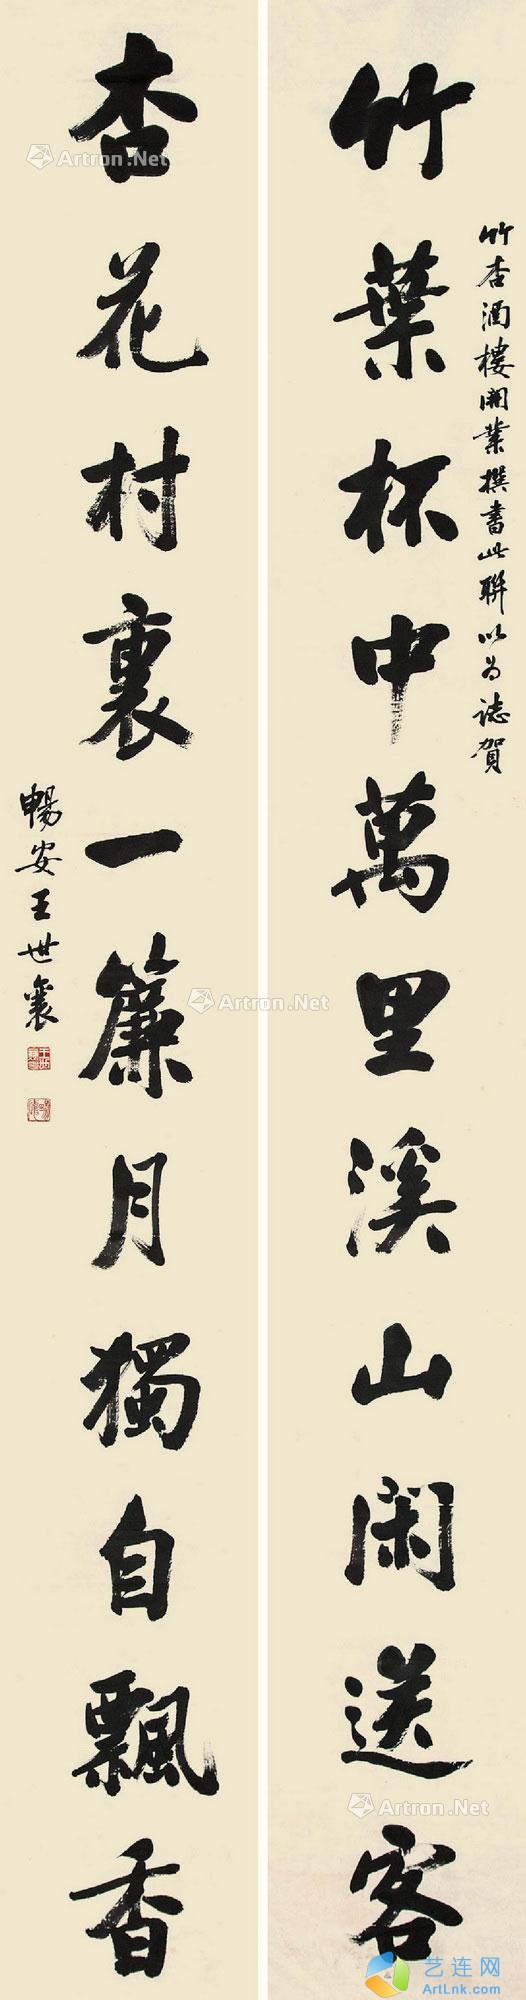 竹杏酒樓開業撰書此聯以為誌賀
竹葉杯中萬里溪山閑送客
杏花村裏一簾月獨自飄香
暢安王世襄
Artron.Net
Artron.Net
Artron.Net
Artron.Net
Artron.Net
艺连网
ArtLnk.com